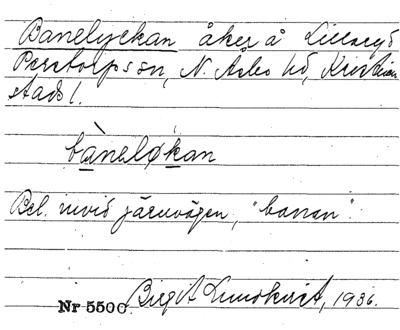 Banelyckan åker å Lillaryd
Perstorps sn, N. Åsbo hd, Kristian
stads l.
bàneløkan
Bel. invid järnvägen, "banan".
Nr 5500 Birgit Lundkvist, 1936.